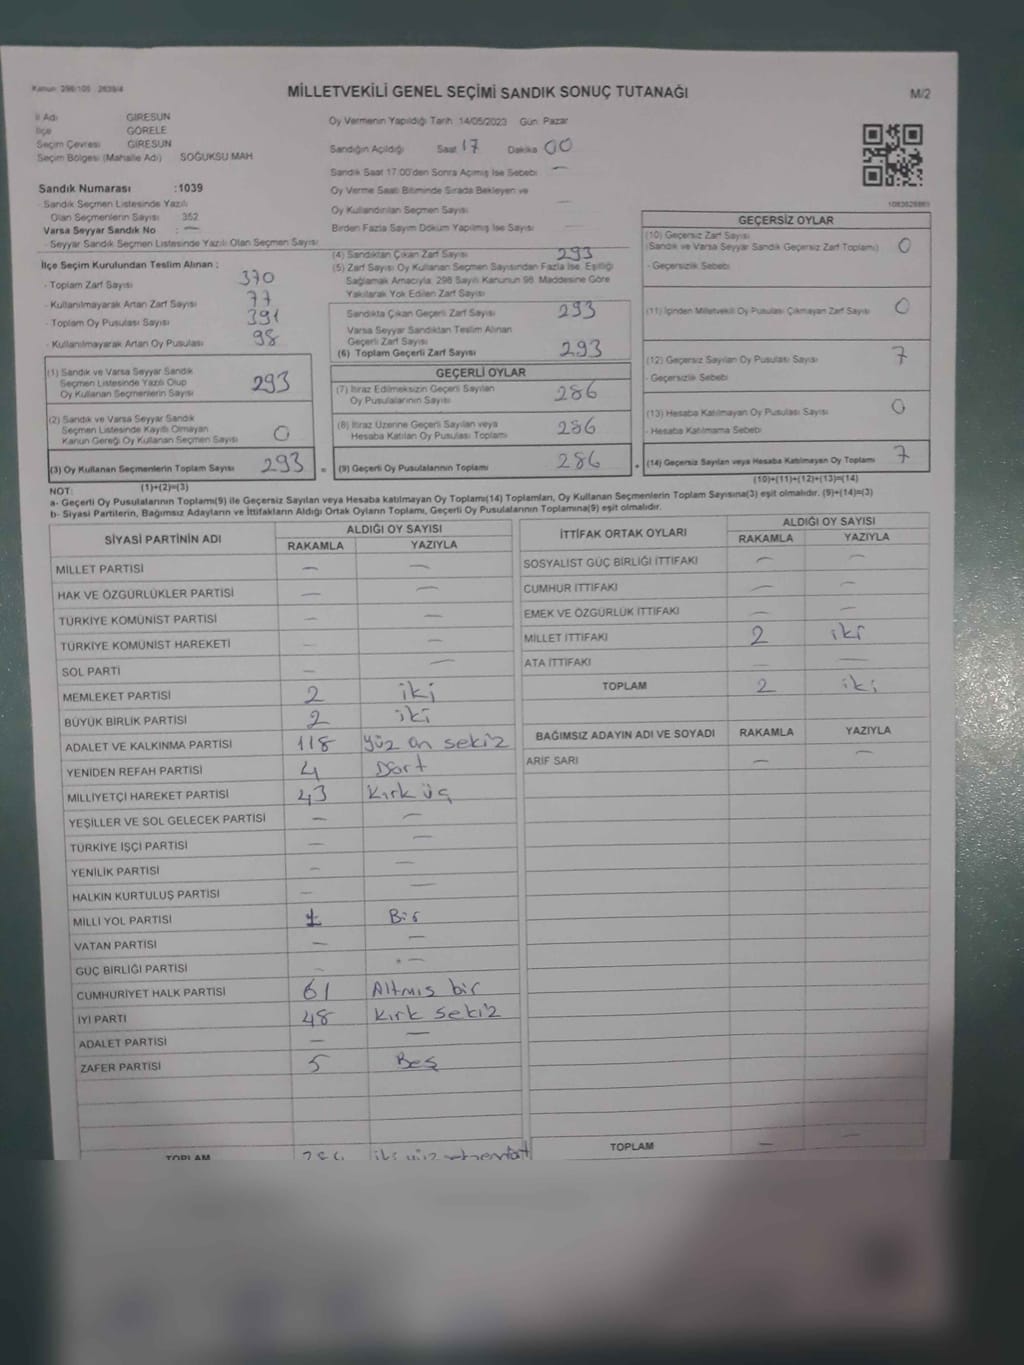 Kanun: 298/105 2839/4
MİLLETVEKİLİ GENEL SEÇİMİ SANDIK SONUÇ TUTANAĞI
M/2
İl Adı GİRESUN
İlçe GÖRELE
Seçim Çevresi GİRESUN
Seçim Bölgesi (Mahalle Adı) SOĞUKSU MAH
Oy Vermenin Yapıldığı Tarih: 14/05/2023 Gün: Pazar
Sandığın Açıldığı Saat 17 Dakika 00
Sandık Saat 17.00'den Sonra Açılmış İse Sebebi —
Oy Verme Saati Bitiminde Sırada Bekleyen ve
Oy Kullandırılan Seçmen Sayısı —
Birden Fazla Sayım Döküm Yapılmış İse Sayısı —
Sandık Numarası :1039
- Sandık Seçmen Listesinde Yazılı
Olan Seçmenlerin Sayısı 352
Varsa Seyyar Sandık No : —
- Seyyar Sandık Seçmen Listesinde Yazılı Olan Seçmen Sayısı:
İlçe Seçim Kurulundan Teslim Alınan :
- Toplam Zarf Sayısı 370
- Kullanılmayarak Artan Zarf Sayısı 77
- Toplam Oy Pusulası Sayısı 391
- Kullanılmayarak Artan Oy Pusulası 98
(1) Sandık ve Varsa Seyyar Sandık
Seçmen Listesinde Yazılı Olup
Oy Kullanan Seçmenlerin Sayısı 293
(2) Sandık ve Varsa Seyyar Sandık
Seçmen Listesinde Kayıtlı Olmayan
Kanun Gereği Oy Kullanan Seçmen Sayısı 0
(3) Oy Kullanan Seçmenlerin Toplam Sayısı 293
(1)+(2)=(3)
(4) Sandıktan Çıkan Zarf Sayısı 293
(5) Zarf Sayısı Oy Kullanan Seçmen Sayısından Fazla İse, Eşitliği
Sağlamak Amacıyla, 298 Sayılı Kanunun 98. Maddesine Göre
Yakılarak Yok Edilen Zarf Sayısı
Sandıkta Çıkan Geçerli Zarf Sayısı 293
Varsa Seyyar Sandıktan Teslim Alınan
Geçerli Zarf Sayısı
(6) Toplam Geçerli Zarf Sayısı 293
GEÇERLİ OYLAR
(7) İtiraz Edilmeksizin Geçerli Sayılan
Oy Pusulalarının Sayısı 286
(8) İtiraz Üzerine Geçerli Sayılan veya
Hesaba Katılan Oy Pusulası Toplamı 286
= (9) Geçerli Oy Pusulalarının Toplamı 286
GEÇERSİZ OYLAR
(10) Geçersiz Zarf Sayısı
(Sandık ve Varsa Seyyar Sandık Geçersiz Zarf Toplamı) 0
- Geçersizlik Sebebi
(11) İçinden Milletvekili Oy Pusulası Çıkmayan Zarf Sayısı 0
(12) Geçersiz Sayılan Oy Pusulası Sayısı 7
- Geçersizlik Sebebi
(13) Hesaba Katılmayan Oy Pusulası Sayısı 0
- Hesaba Katılmama Sebebi
+ (14) Geçersiz Sayılan veya Hesaba Katılmayan Oy Toplamı 7
(10)+(11)+(12)+(13)=(14)
NOT:
a- Geçerli Oy Pusulalarının Toplamı(9) ile Geçersiz Sayılan veya Hesaba katılmayan Oy Toplamı(14) Toplamları, Oy Kullanan Seçmenlerin Toplam Sayısına(3) eşit olmalıdır. (9)+(14)=(3)
b- Siyasi Partilerin, Bağımsız Adayların ve İttifakların Aldığı Ortak Oyların Toplamı, Geçerli Oy Pusulalarının Toplamına(9) eşit olmalıdır.
SİYASİ PARTİNİN ADI ALDIĞI OY SAYISI
RAKAMLA YAZIYLA
MİLLET PARTİSİ — —
HAK VE ÖZGÜRLÜKLER PARTİSİ — —
TÜRKİYE KOMÜNİST PARTİSİ — —
TÜRKİYE KOMÜNİST HAREKETİ — —
SOL PARTİ — —
MEMLEKET PARTİSİ 2 iki
BÜYÜK BİRLİK PARTİSİ 2 iki
ADALET VE KALKINMA PARTİSİ 118 yüz on sekiz
YENİDEN REFAH PARTİSİ 4 Dört
MİLLİYETÇİ HAREKET PARTİSİ 43 Kırk üç
YEŞİLLER VE SOL GELECEK PARTİSİ — —
TÜRKİYE İŞÇİ PARTİSİ — —
YENİLİK PARTİSİ — —
HALKIN KURTULUŞ PARTİSİ — —
MİLLİ YOL PARTİSİ 1 Bir
VATAN PARTİSİ — —
GÜÇ BİRLİĞİ PARTİSİ — —
CUMHURİYET HALK PARTİSİ 61 Altmış bir
İYİ PARTİ 48 Kırk sekiz
ADALET PARTİSİ — —
ZAFER PARTİSİ 5 Beş
TOPLAM
İTTİFAK ORTAK OYLARI ALDIĞI OY SAYISI
RAKAMLA YAZIYLA
SOSYALİST GÜÇ BİRLİĞİ İTTİFAKI — —
CUMHUR İTTİFAKI — —
EMEK VE ÖZGÜRLÜK İTTİFAKI — —
MİLLET İTTİFAKI 2 iki
ATA İTTİFAKI — —
TOPLAM 2 iki
BAĞIMSIZ ADAYIN ADI VE SOYADI RAKAMLA YAZIYLA
ARİF SARI — —
TOPLAM — —